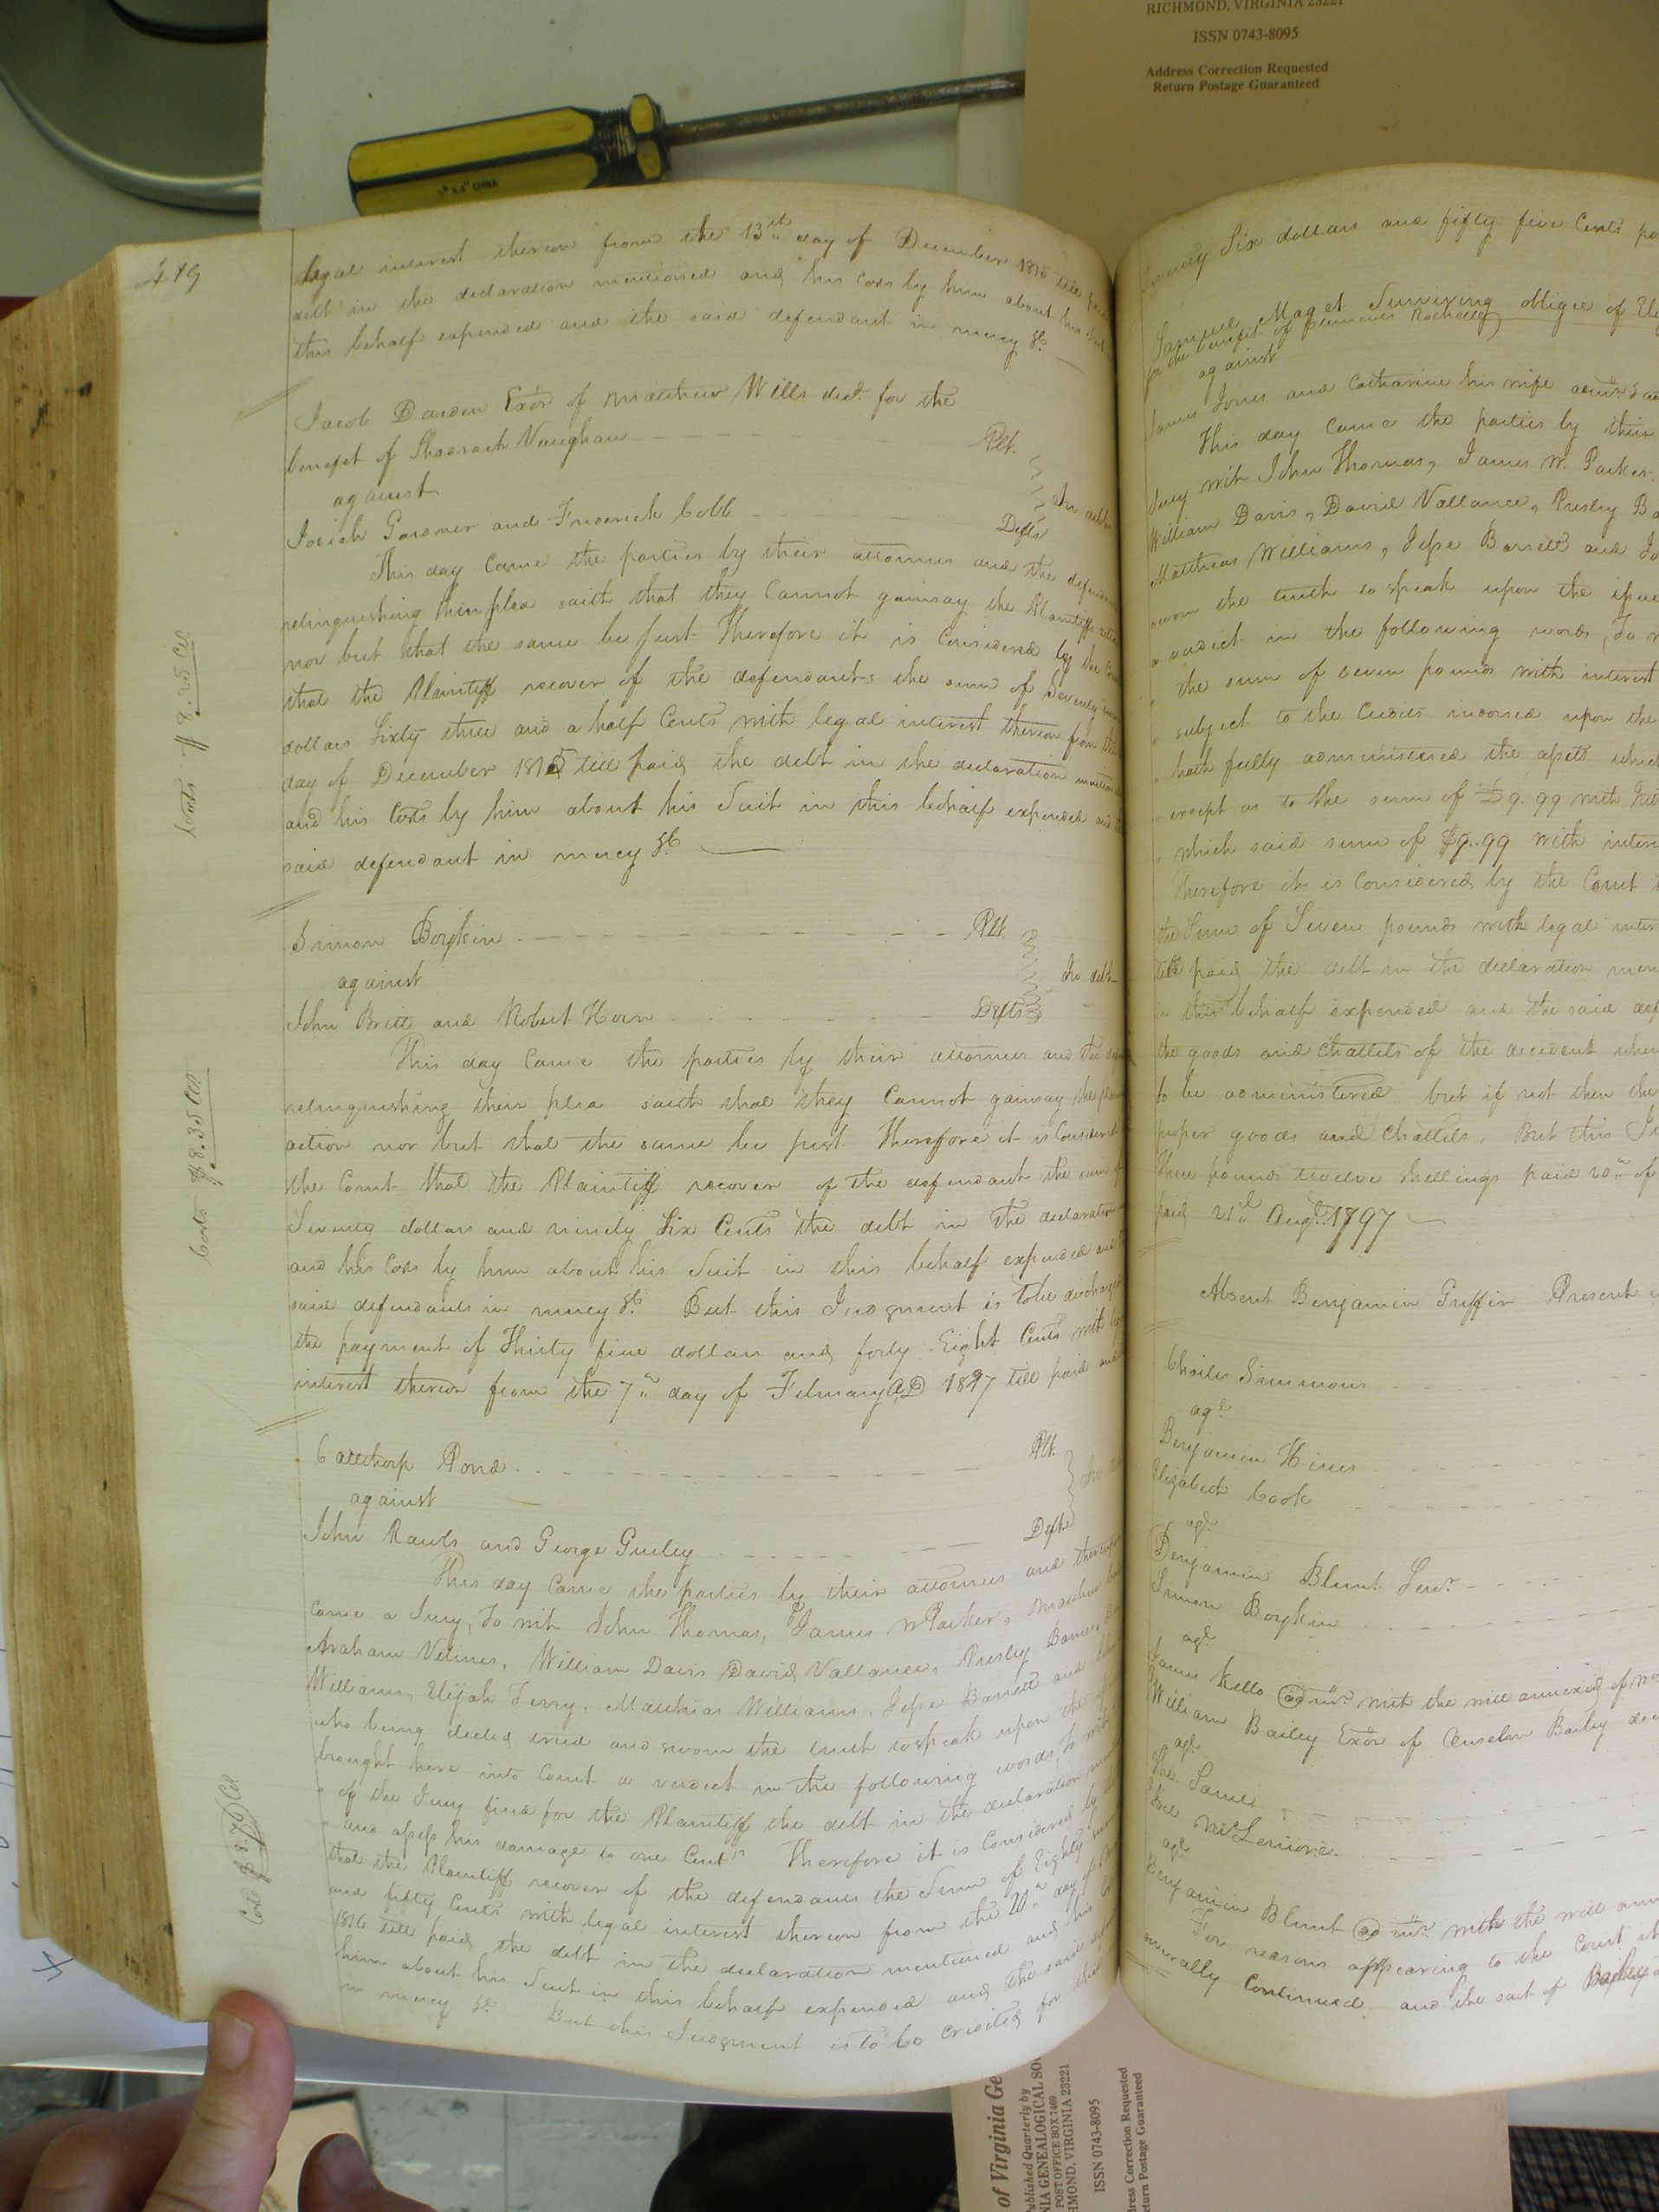 RICHMOND, VIRGINIA 23221
ISSN 0743-8095
Address Correction Requested
Return Postage Guaranteed
CHINA
419
legal interest thereon from the 13th day of December till paid
debt in the declaration mentioned and his Costs by him about his Suit
this behalf expended and the said defendant in mercy &c.
Jacob Darden Exor. of Matthew Wills decd. for the
benefit of Shadrach Vaughan Plt.
against In debt
Josiah Gardner and Frederick Cobb Defts
This day Came the parties by their attornies and the
relinquishing their plea saith that they Cannot gainsay the Plaintiffs
nor but that the same be just Therefore it is Considered by the
that the Plaintiff recover of the defendants the sum of Seventy
dollars Sixty three and a half Cents with legal interest thereon from the
day of December 1815 till paid the debt in the declaration
and his Costs by him about his Suit in this behalf expended and
said defendant in mercy &c
Costs $ 8.25 Cts
Simon Boykin Plt.
against In debt
John Britt and Robert Horn Defts
This day Came the parties by their attornies and the
relinquishing their plea saith that they Cannot gainsay the
action nor but that the same be just Therefore it is Considered
the Court that the Plaintiff recover of the defendant the sum of
Seventy dollars and ninety Six Cents the debt in the declaration
and his Costs by him about his Suit in this behalf expended and
said defendants in mercy &c. But this Judgment is to be discharged
the payment of Thirty five dollars and forty Eight Cents with
interest thereon from the 7th day of February AD 1817 till paid and
Costs $ 8.35 Cts
Callthorp Pond Plt.
against
John Rawls and George Gurley Defts
This day Came the parties by their attornies and thereupon
Came a Jury, To wit John Thomas, James W Parker,
Abraham Vellines, William Davis David Vallance, Presley Barnes,
Williams, Elijah Ferry, Matthias Williams, Jesse Barrett and
who being elected tried and sworn the truth to speak upon the
brought here into Court a verdict in the following words, to wit
" of the Jury find for the Plaintiff the debt in the declaration
" and assess his damage to one Cent" Therefore it is Considered by
that the Plaintiff recover of the defendants the Sum of Eighty
and fifty Cents with legal interest thereon from the 20th day of
1816 till paid the debt in the declaration mentioned and his
him about his Suit in this behalf expended and the said
in mercy &c. But this Judgment is to be Credited for
Costs $ 8.79 Cts
Six dollars and fifty five Cents
Samuel Maget Surviving obligee of
for the benefit of Clements Rochelle)
against
James Jones and Catharine his wife
This day Came the parties by their
Jury wit John Thomas, James W. Parker
William Davis, David Vallance, Presley
Matthias Williams, Jesse Barrett and
sworn the truth to speak upon the issue
a verdict in the following words, To
" the sum of seven pounds with interest
" subject to the Credits indorsed upon the
" hath fully administered the assets which
" except as to the sum of $9.99 with
" which said sum of $9.99 with
Therefore it is Considered by the Court
the Sum of Seven pounds with legal
till paid the debt in the declaration
in this behalf expended and the said
the goods and Chattels of the decedent
to be administered but if not then the
proper goods and Chattels. But this
Three pounds twelve Shillings paid 20th of
paid 21st Augt. 1797
Absent Benjamin Griffin Present
Charles Simmons
agt
Benjamin Hines
Elizabeth Cook
agt
Benjamin Blunt Senr.
Simon Boykin
agt
James Kello admr. with the will annexed of
William Bailey Exor of Anselm Bailey
agt
The Same
McLemore
agt
Benjamin Blunt admr. with the will
For reasons appearing to the Court it
Continued. and the suit of Bailey
of Virginia
Published Quarterly by
GENEALOGICAL
POST OFFICE BOX 7469
RICHMOND, VIRGINIA 23221
ISSN 0743-8095
Address Correction Requested
Return Postage Guaranteed